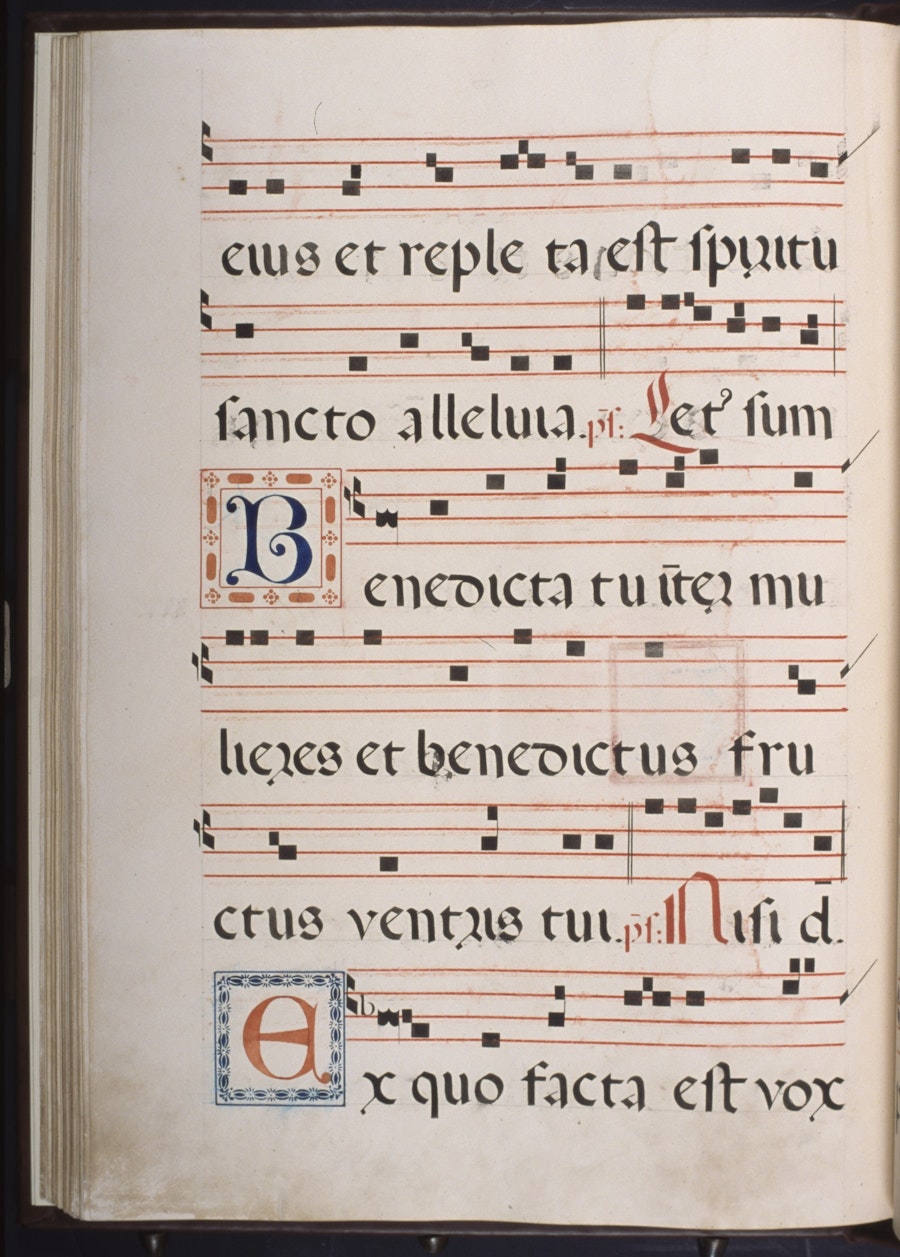 eius et reple ta est spiritu
sancto alleluia. ps: Letꝰ sum
Benedicta tu īter mu
lieres et benedictus fru
ctus ventris tui. ps: Nisi d̄.
Ex quo facta est vox